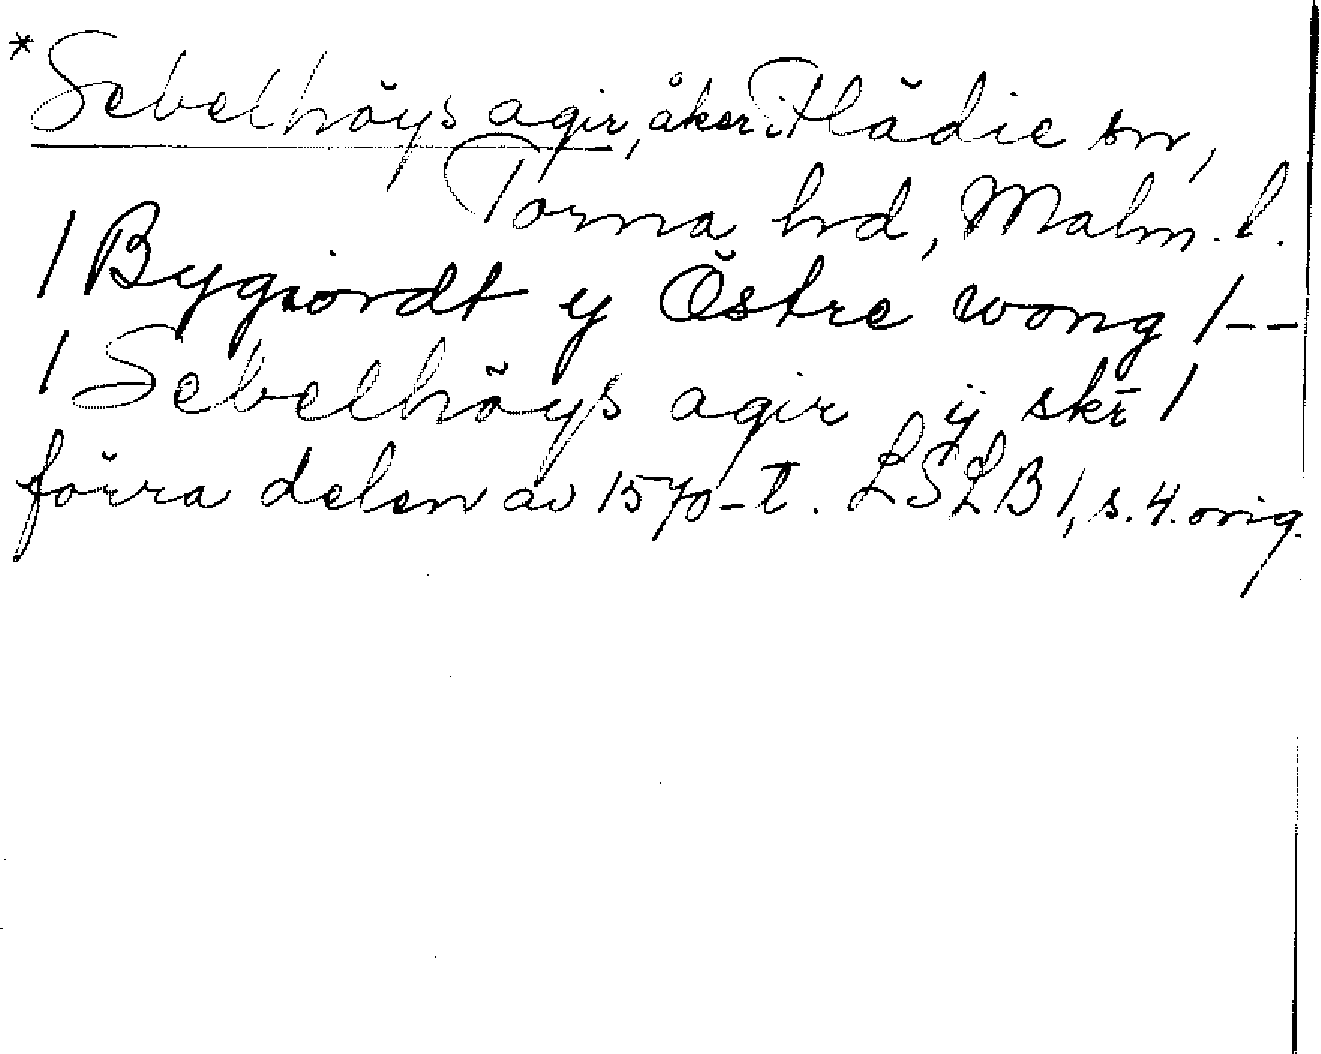 *Sebelhöys agir, åker i Flädie sn,
Torna hd, Malm. l.
/ Bygiordt y Östre wong /--
/ Sebelhöys agir ij skī /
förra delen av 1570-t. LSLB 1, s. 4. orig.